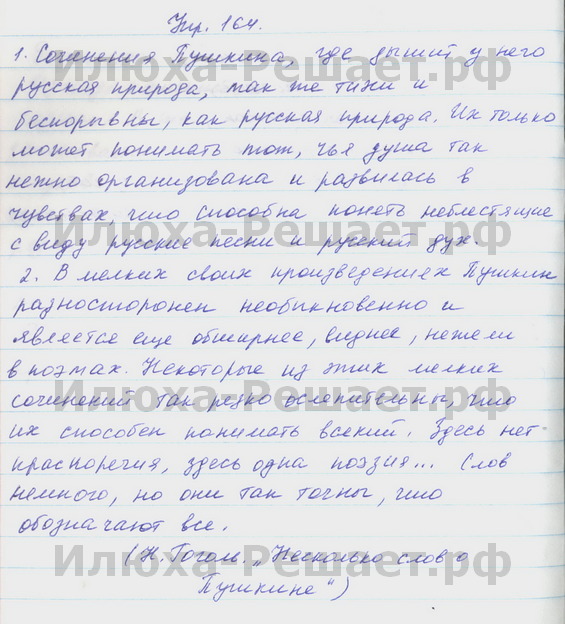 Упр. 164.
1. Сочинения Пушкина, где дышит у него
русская природа, так же тихи и
беспорывны, как русская природа. Их только
может понимать тот, чья душа так
нежно организована и развилась в
чувствах, что способна понять неблестящие
с виду русские песни и русский дух.
2. В мелких своих произведениях Пушкин
разносторонен необыкновенно и
является еще обширнее, виднее, нежели
в поэмах. Некоторые из этих мелких
сочинений так резко ослепительны, что
их способен понимать всякий. Здесь нет
красноречия, здесь одна поэзия... Слов
немного, но они так точны, что
обозначают все.
(Н. Гоголь. „Несколько слов о
Пушкине")
Илюха-Решает.рф
Илюха-Решает.рф
Илюха-Решает.рф
Илюха-Решает.рф